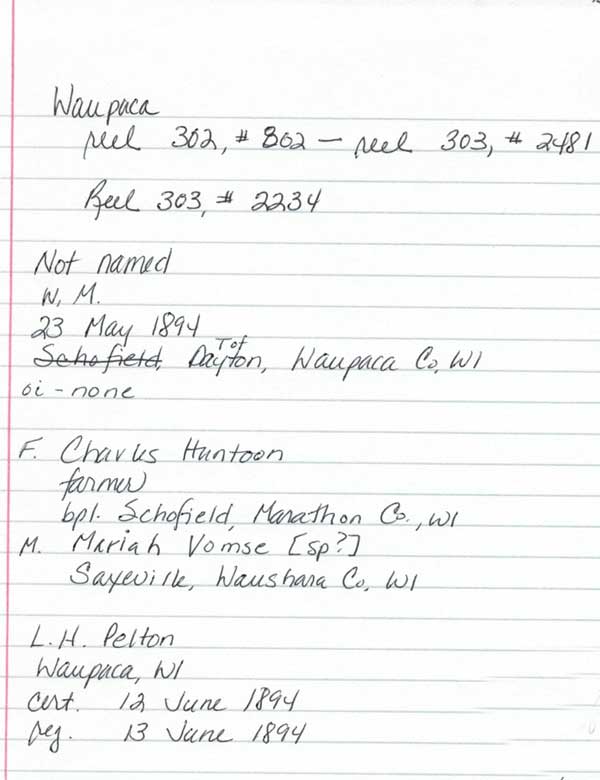 Waupaca
reel 302, # 802 – reel 303, # 2481
Reel 303, # 2234
Not named
W. M.
23 May 1894
Schofield, T of Dayton, Waupaca Co, WI
oi - none
F. Charles Huntoon
farmer
bpl. Schofield, Marathon Co., WI
M. Mariah Vomse [sp?]
Saxeville, Waushara Co, WI
L.H. Pelton
Waupaca, WI
cert. 12 June 1894
reg. 13 June 1894